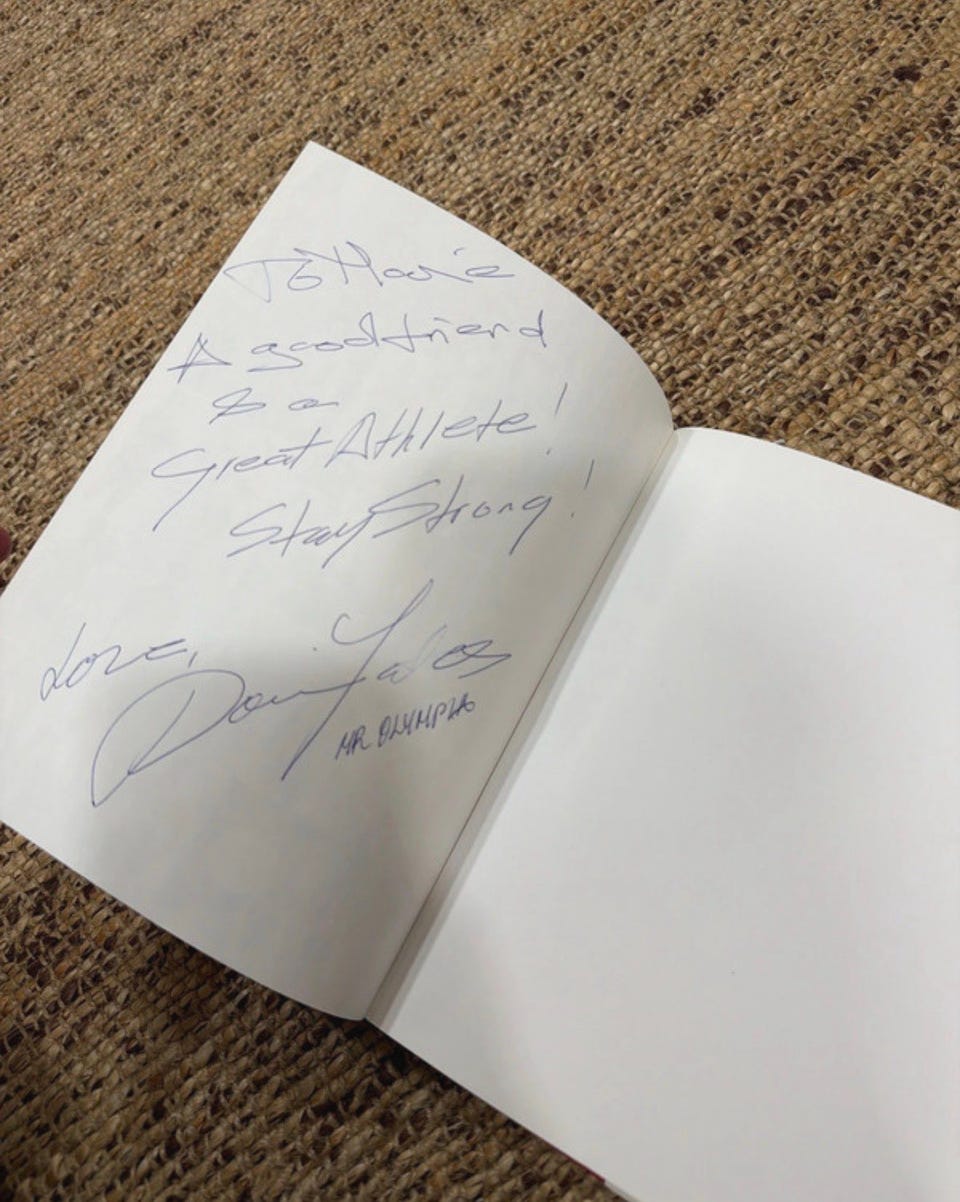 To Marie
A good friend
& a
Great Athlete!
Stay Strong!
Love,
Dorian Yates
MR OLYMPIA